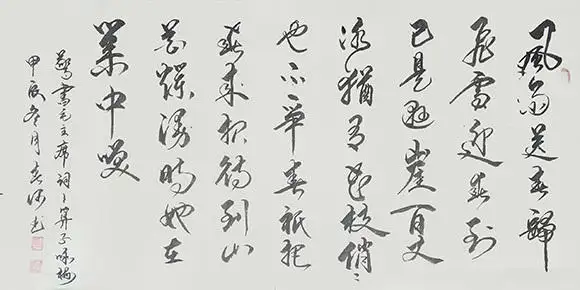 風雨送春歸
飛雪迎春到
已是懸崖百丈
冰猶有花枝俏〻
也不爭春祇把
春來報待到山
花爛漫時她在
叢中笑
敬書毛主席詞卜算子咏梅
甲辰冬月